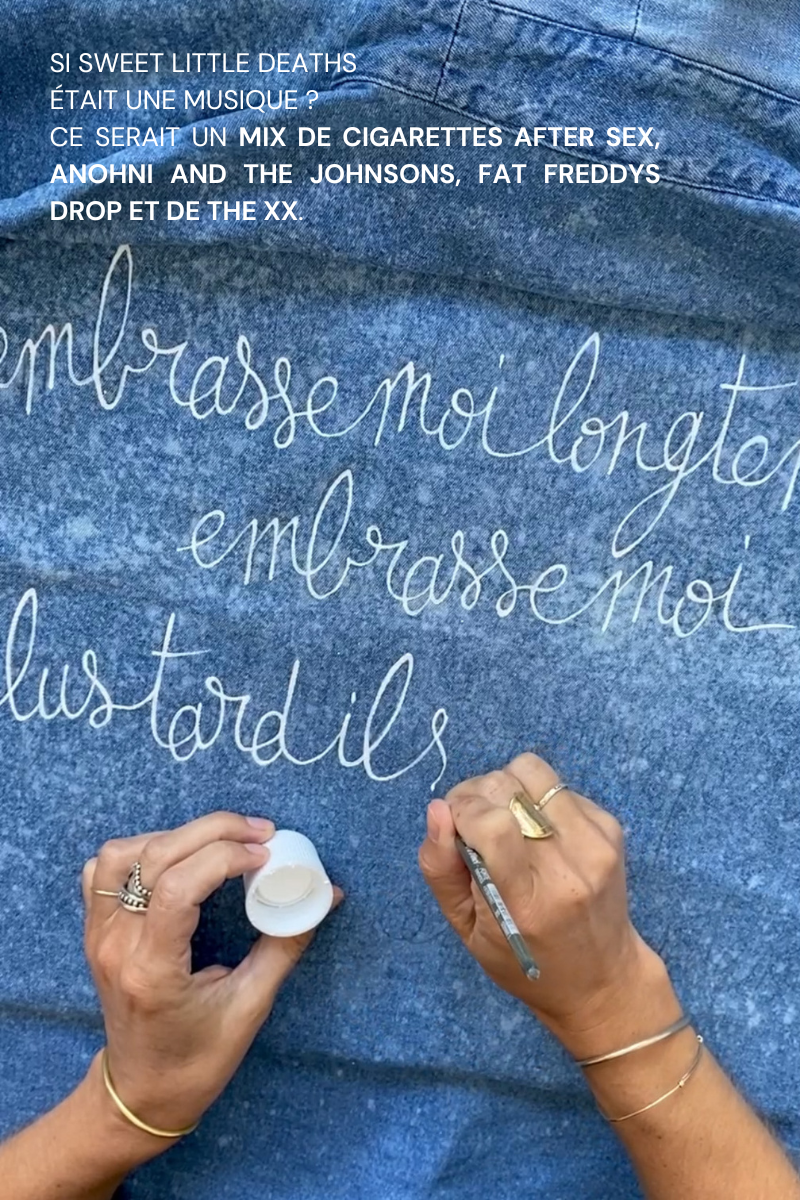 SI SWEET LITTLE DEATHS
ÉTAIT UNE MUSIQUE ?
CE SERAIT UN MIX DE CIGARETTES AFTER SEX,
ANOHNI AND THE JOHNSONS, FAT FREDDYS
DROP ET DE THE XX.
embrasse moi longte
embrasse moi
lus tard ils